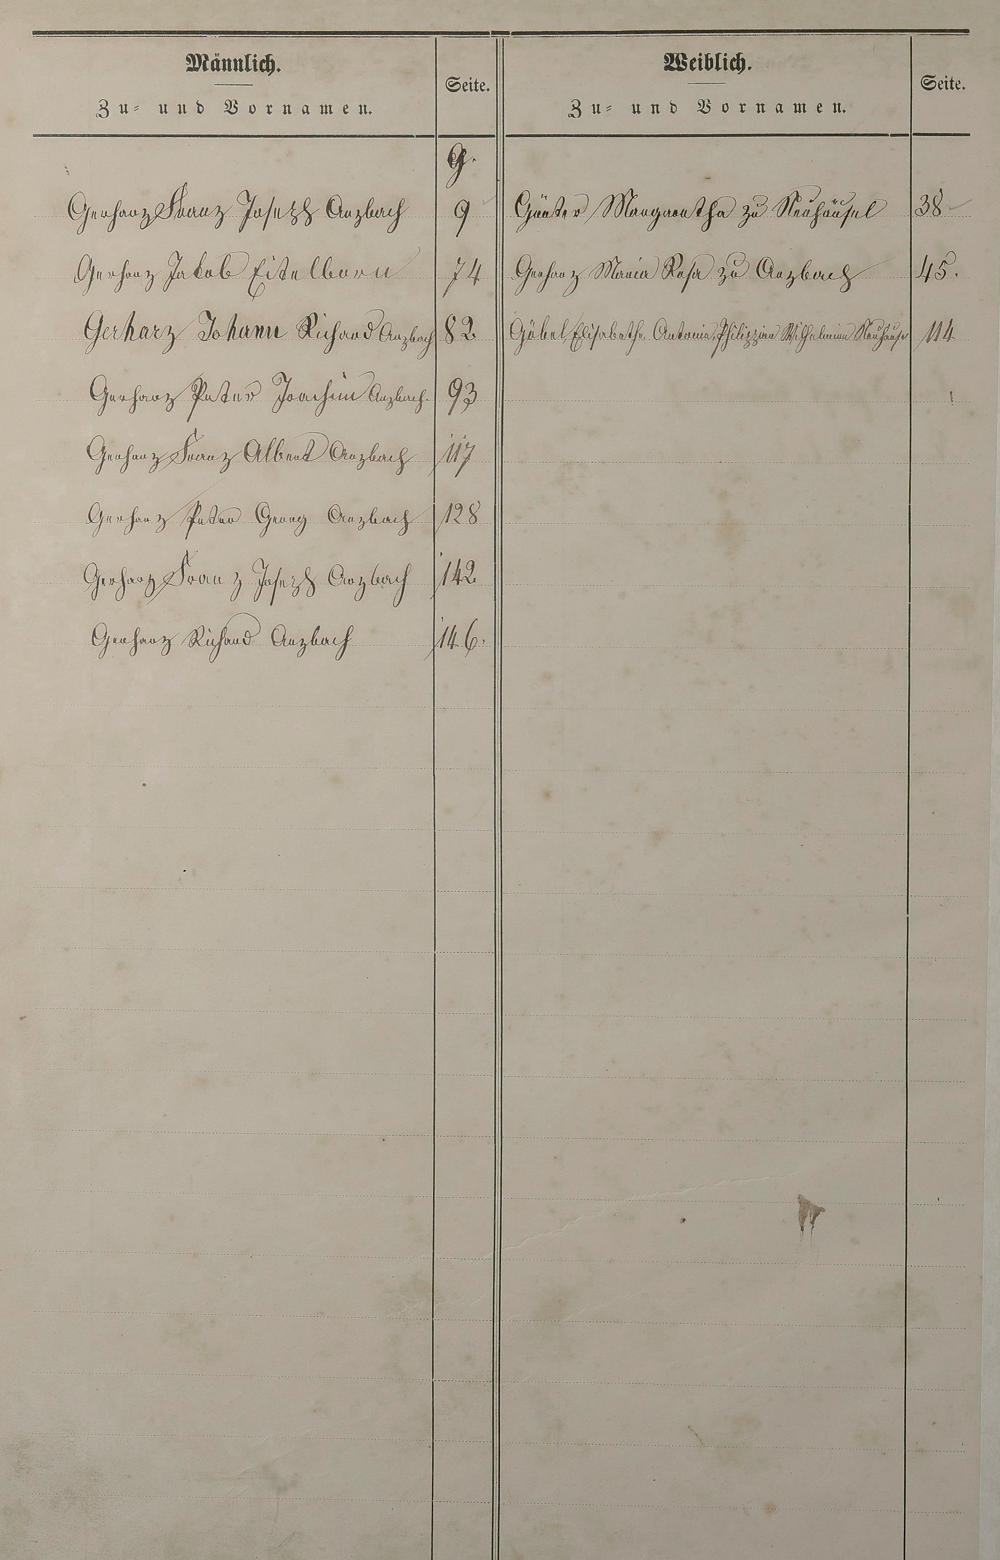 Männlich.
Zu- und Vornamen.
Seite.
Weiblich.
Zu- und Vornamen.
Seite.
G.
Gerharz Franz Joseph Arzbach 9
Gerharz Jakob Eitelborn 74
Gerharz Johann Richard Arzbach 82
Gerharz Peter Joachim Arzbach. 93
Gerharz Franz Albert Arzbach 117
Gerharz Peter Georg Arzbach 128
Gerharz Franz Joseph Arzbach 142
Gerharz Richard Arzbach 146.
Günter Margaretha zu Neuhäusel 38
Gerharz Maria Rosa zu Arzbach 45.
Göbel Elisabethe Antonie Philippine Wilhelmine Neuhäusel 114